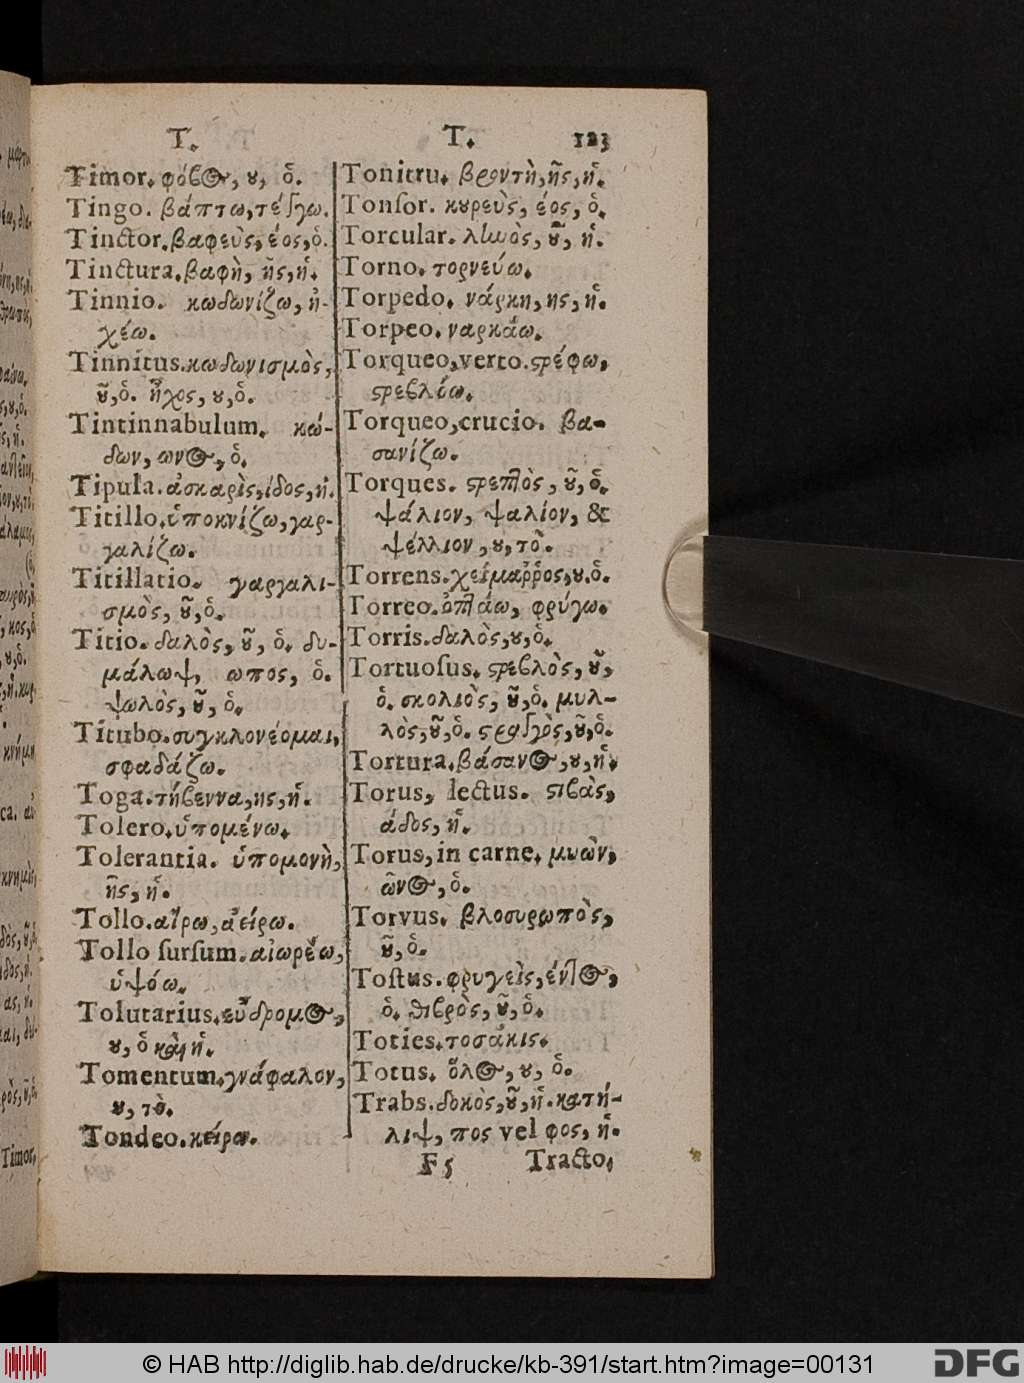 T.
Timor. φόβος, ου, ὁ.
Tingo. βάπτω, τέγγω.
Tinctor. βαφεὺς, έος, ὁ.
Tinctura. βαφὴ, ῆς, ἡ.
Tinnio. κωδωνίζω, ἠ-
χέω.
Tinnitus. κωδωνισμὸς,
οῦ, ὁ. ἦχος, ου, ὁ.
Tintinnabulum. κώ-
δων, ωνος, ὁ.
Tipula. ἀσκαρὶς, ίδος, ἡ.
Titillo. ὑποκνίζω, γαρ-
γαλίζω.
Titillatio. γαργαλι-
σμὸς, οῦ, ὁ.
Titio. δαλὸς, οῦ, ὁ. δυ-
μάλωψ, ωπος, ὁ.
ψωλὸς, οῦ, ὁ.
Titubo. συγκλονέομαι,
σφαδάζω.
Toga. τήβεννα, ης, ἡ.
Tolero. ὑπομένω.
Tolerantia. ὑπομονὴ,
ῆς, ἡ.
Tollo. αἴρω, ἀείρω.
Tollo sursum. αἰωρέω,
ὑψόω.
Tolutarius. εὔδρομος,
ου, ὁ καὶ ἡ.
Tomentum. γνάφαλον,
ου, τὸ.
Tondeo. κείρω.
T. 123
Tonitru. βροντὴ, ῆς, ἡ.
Tonsor. κουρεὺς, έος, ὁ.
Torcular. ληνὸς, οῦ, ἡ.
Torno. τορνεύω.
Torpedo. νάρκη, ης, ἡ.
Torpeo. ναρκάω.
Torqueo, verto. στρέφω,
στρεβλέω.
Torqueo, crucio. βα-
σανίζω.
Torques. στρεπτὸς, οῦ, ὁ.
ψάλιον, ψαλίον, &
ψέλλιον, ου, τὸ.
Torrens. χείμαῤῥος, ου. ὁ.
Torreo. ὀπτάω, φρύγω.
Torris. δαλὸς, ου, ὁ.
Tortuosus. στρεβλὸς, οῦ,
ὁ. σκολιὸς, οῦ, ὁ. μυλ-
λὸς, οῦ, ὁ. στραγγὸς, οῦ, ὁ.
Tortura. βάσανος, ου, ἡ.
Torus, lectus. στιβὰς,
άδος, ἡ.
Torus, in carne. μυὼν,
ῶνος, ὁ.
Torvus. βλοσυρωπὸς,
οῦ, ὁ.
Tostus. φρυγεὶς, έντος,
ὁ. θιβρὸς, οῦ, ὁ.
Toties. τοσάκις.
Totus. ὅλος, ου, ὁ.
Trabs. δοκὸς, οῦ, ἡ. κατή-
λιψ, πος vel φος, ἡ.
F 5 Tracto,
© HAB http://diglib.hab.de/drucke/kb-391/start.htm?image=00131
DFG